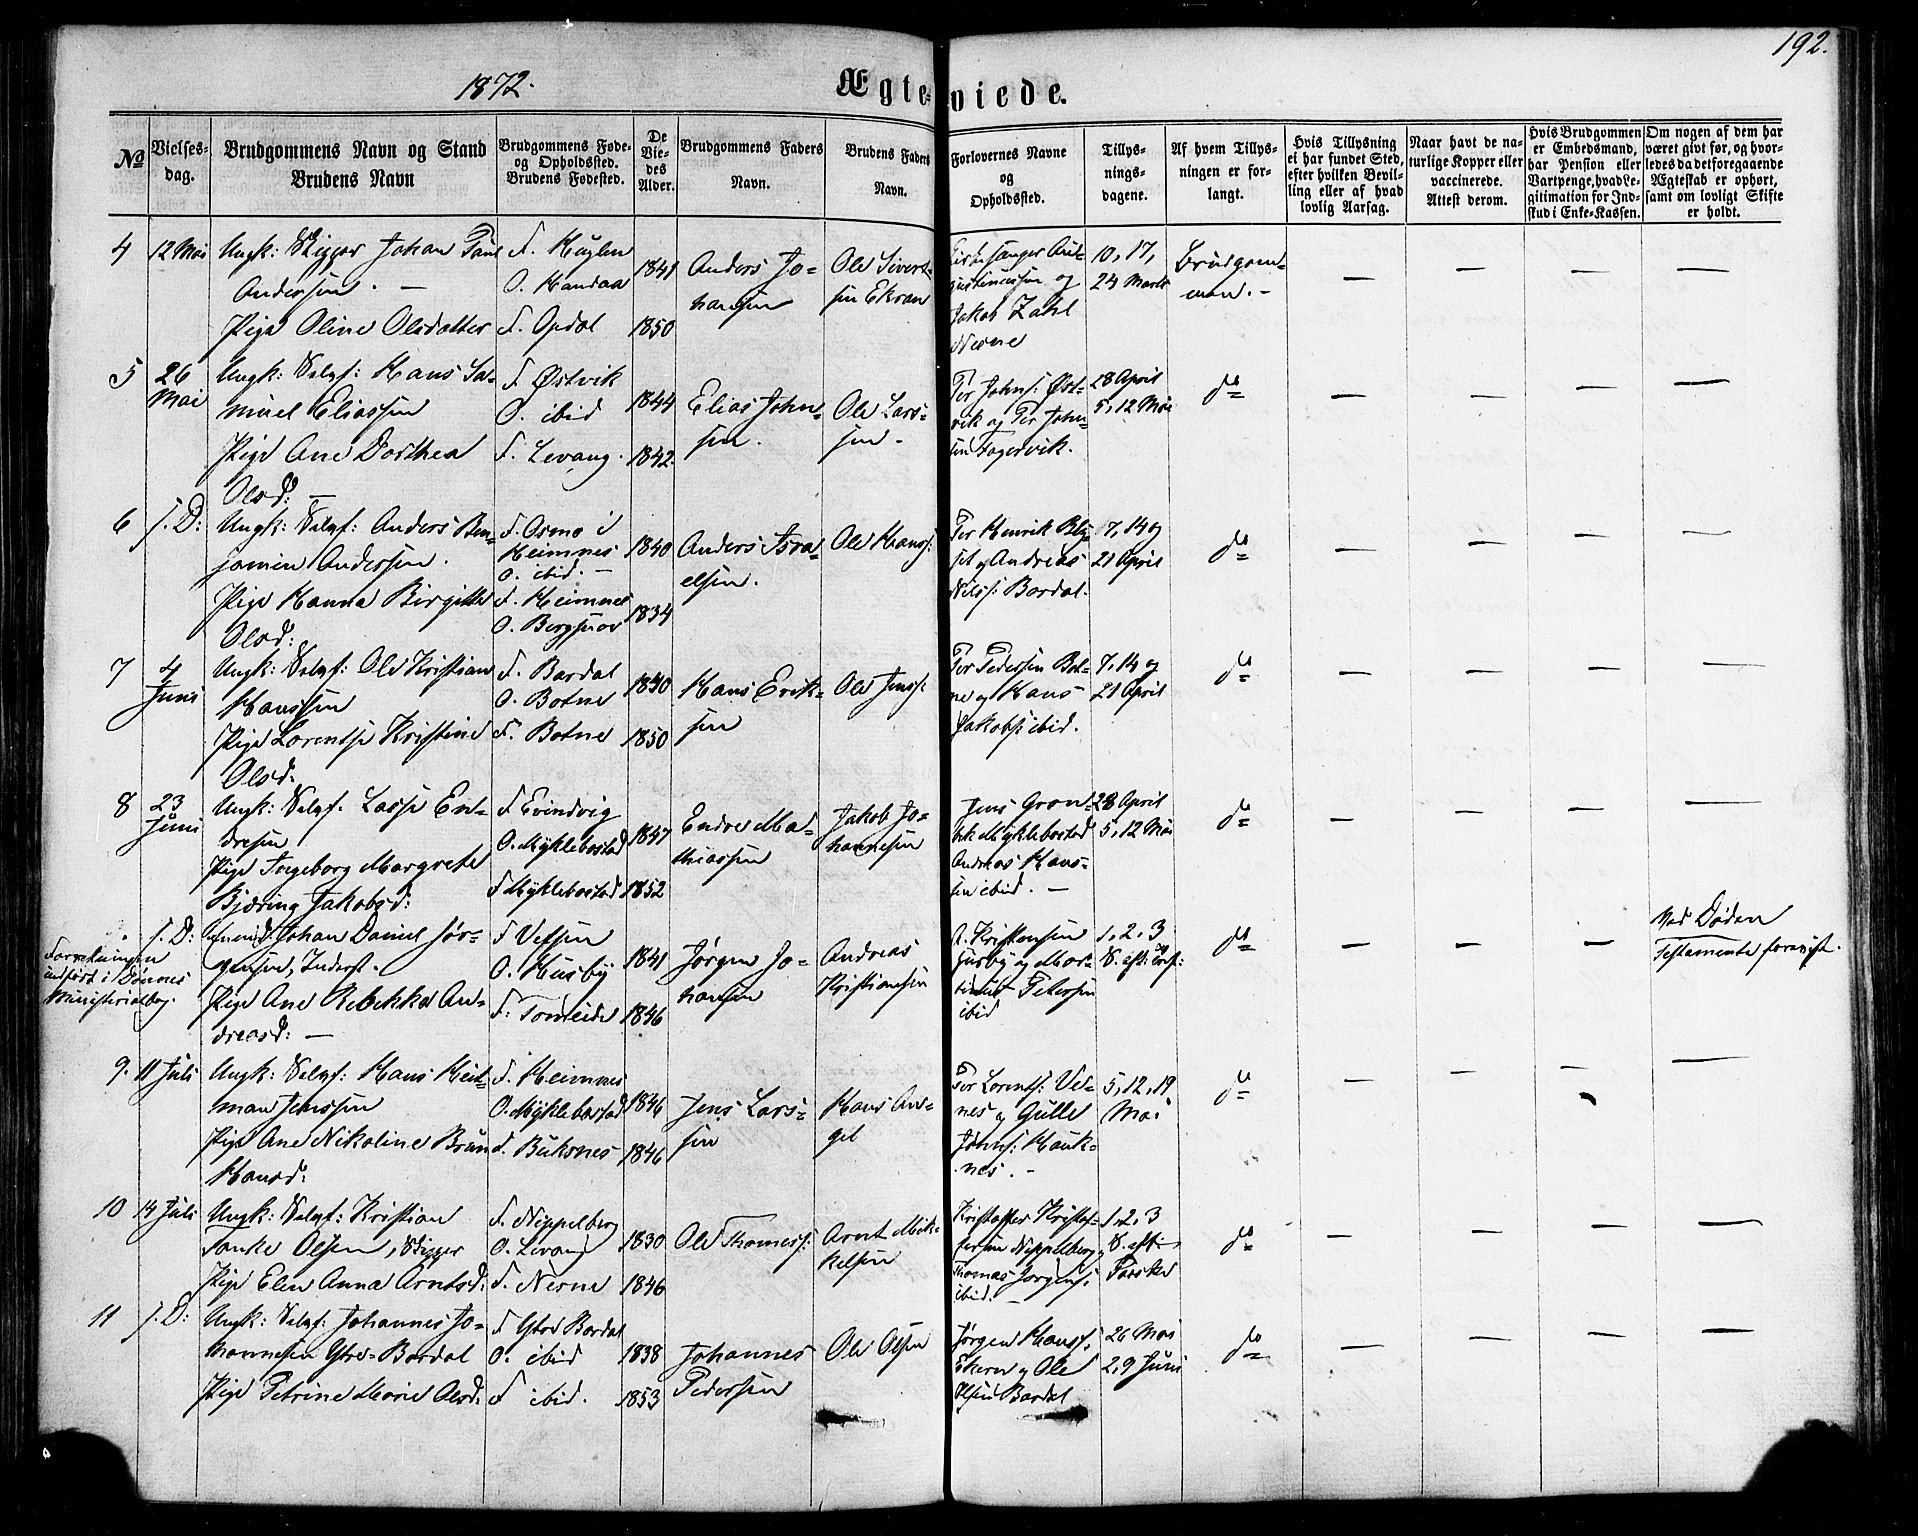 192.
1872.
Ægteviede.
No
Vielses-
dag.
Brudgommens Navn og Stand
Brudens Navn
Brudgommens Føde-
og Opholdssted.
Brudens Fødested.
De
Vie-
des
Alder.
Brudgommens Faders
Navn.
Brudens Faders
Navn.
Forlovernes Navne
og
Opholdssted.
Tillys-
nings-
dagene.
Af hvem Tillys-
ningen er for-
langt.
Hvis Tillysning
ei har fundet Sted,
efter hvilken Bevil-
ling eller af hvad
lovlig Aarsag.
Naar havt de na-
turlige Kopper eller
vaccinerede.
Attest derom.
Hvis Brudgommen
er Embedsmand,
har Pension eller
Vartpenge, hvad Le-
gitimation for Ind-
skud i Enke-Kassen.
Om nogen af dem har
været givt før, og hvor-
ledes da det foregaaende
Ægteskab er ophørt,
samt om lovligt Skifte
er holdt.
4 12 Mai
Ungk: Skipper Johan Paul
Andersen. —
Pige Oline Olsdatter
F. Huglen
O. Handaa
F. Opdal
1841
1850
Anders Jo-
hansen
Ole Sivert-
sen Ekran
Kirkesanger Au-
gustinussen og
Jakob Zahl
Nesne
10, 17,
24 Marts
Brudgom-
men. -
5 26
Mai
Ungk: Selvf: Hans Sa-
muel Eliassen
Pige Ane Dorthea
Olsd: —
F. Østvik
O. ibid
F. Levang.
1844
1842.
Elias John-
sen.
Ole Lars-
sen -
Per Johns: Øst-
vik og Per John-
sen Fagervik.
28 April
5, 12 Mai
do
6 s. D:
Ungk: Selvf: Anders Ben-
jamin Andersen.
Pige Hanna Birgitte
Olsd:
F. Osmo i
Heimnes
O. ibid. -
F. Heimnes
O.
1840
1834
Anders Isra-
elsen.
Ole Hanss:
Per Henrik
og Andreas
Nilss: Bardal.
7, 14 og
21 April
do
7 4
Juni
Ungk: Selvf: Ole Kristian
Hanssen
Pige Lorentse Kristine
Olsd.
F. Bardal
O. Botne
F. Botne
1850
Hans Erik-
sen
Ole Jenss:
Per Pedersen Bot-
ne og Hans
Jakobs: ibid.
7, 14 og
21 April
do
8 23
Juni
Ungk: Selvf. Lasse En-
dresen
Pige Ingeborg Margrete
Bjæring Jakobsd:
F. Evindvig
O. Myklebostad
F Myklebostad
1847
1852
Endre Ma-
thiassen
Jakob Jo-
hannesen
Jens Gron-
bek Myklebostad
Andreas Hans-
sen ibid. —
28 April
5, 12 Mai
do
Forretningen
indført i Dønnes
Ministerialbog.
s. D:
Johan Daniel Jør-
gensen, Inderst.
Pige Ane Rebekka An-
dreasd: —
F Vefsen
O. Husby
F. Tomeide
1841
1846
Jørgen Jo-
hansen
Andreas
Kristiansen
A. Kristensen
Husby og Mar-
Petersen
ibid
1, 2, 3
do
Ved Døden
Testamente forevist.
9. 11 Juli
Ungk: Selvf: Hans Heit-
man Jenssen
Pige Ane Nikoline Brun
Hansd:
F. Heimnes
O. Myklebostad
F. Buksnes
1846
1846
Jens Lars-
sen
Hans An-
gel
Per Lorents: Vet-
nes og Gulle
Johns: Hauk-
nes. -
5, 12, 19
Mai
do
10 14 Juli
Ungk: Selvf: Kristian
Tanke Olsen, Skipper
Pige Elen Anna Arntsd:
F. Nippelberg
O. Levang
F. Nesne
1830
1846
Ole Thomess:
Arnt Mik-
kelsen
Kristoffer Kristof-
fersen Nippelberg
Thomas Jørgens:
ibid. —
1, 2, 3
S. eft:
Paaske
do
11 s. D:
Ungk: Selvf: Johannes Jo-
hannesen Ytre-Bardal
Pige Petrine Marie Olsd:
F Ytre Bardal
O. ibid
F ibid.
1838
1853
Johannes
Pedersen
Ole Olsen
Jørgen Hanss:
Ekern og Ole
Olsen Bardal
26 Mai
2, 9 Juni
do